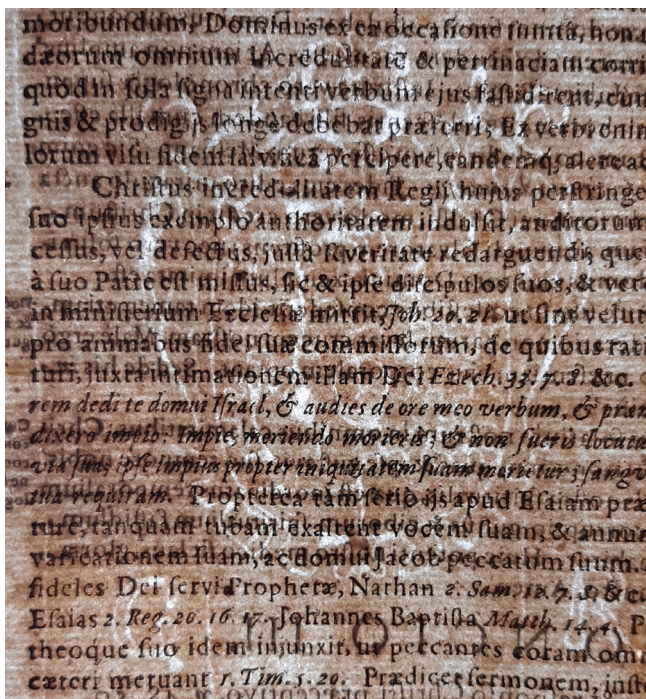 moribundum. Dominus ex ea occasione sumtâ, non
dæorum omnium incredulitatē & pertinaciam corri
quòd in sola signa intenti verbum ejus fastidirent, cùm
gnis & prodigijs longè debebat præferri; Ex verbi enim
lorum visu fidem salvificā percipere, eandemq; alere ac
Christus incredulitatem Regij hujus perstringe
suo ipsius exemplo authoritatem indulsit, auditorum
cessus, vel defectus, justâ severitate redarguendi; que
à suo Patre est missus, sic & ipse discipulos suos, & verè
in ministerium Ecclesiæ mittit, Joh. 20. 21. ut sint velut
pro animabus fidei suæ commissorum, de quibus rati
turi, juxta intimationem illam Dei Ezech. 33. 7. 8. &c.
rem dedi te domui Israel, & audies de ore meo verbum, &
dixero impio: Impie, moriendo morieris; & non fueris locutu
via sua; ipse impius propter iniquitatem suam morietur; sangv
tua requiram. Propterea tam seriò ijs apud Esaiam præ
ture, tanquàm tubam exaltent vocem suam, & annun
varicationem suam, ac domui Jacob peccatum suum.
fideles Dei servi Prophetæ, Nathan 2. Sam. 12. 7. 8. &c.
Esaias 2. Reg. 20. 16. 17. Johannes Baptista Matth. 14. 4. P
theoque suo idem injunxit, ut peccantes coram omn
cæteri metuant 1. Tim. 5. 20. Prædicet sermonem, inst